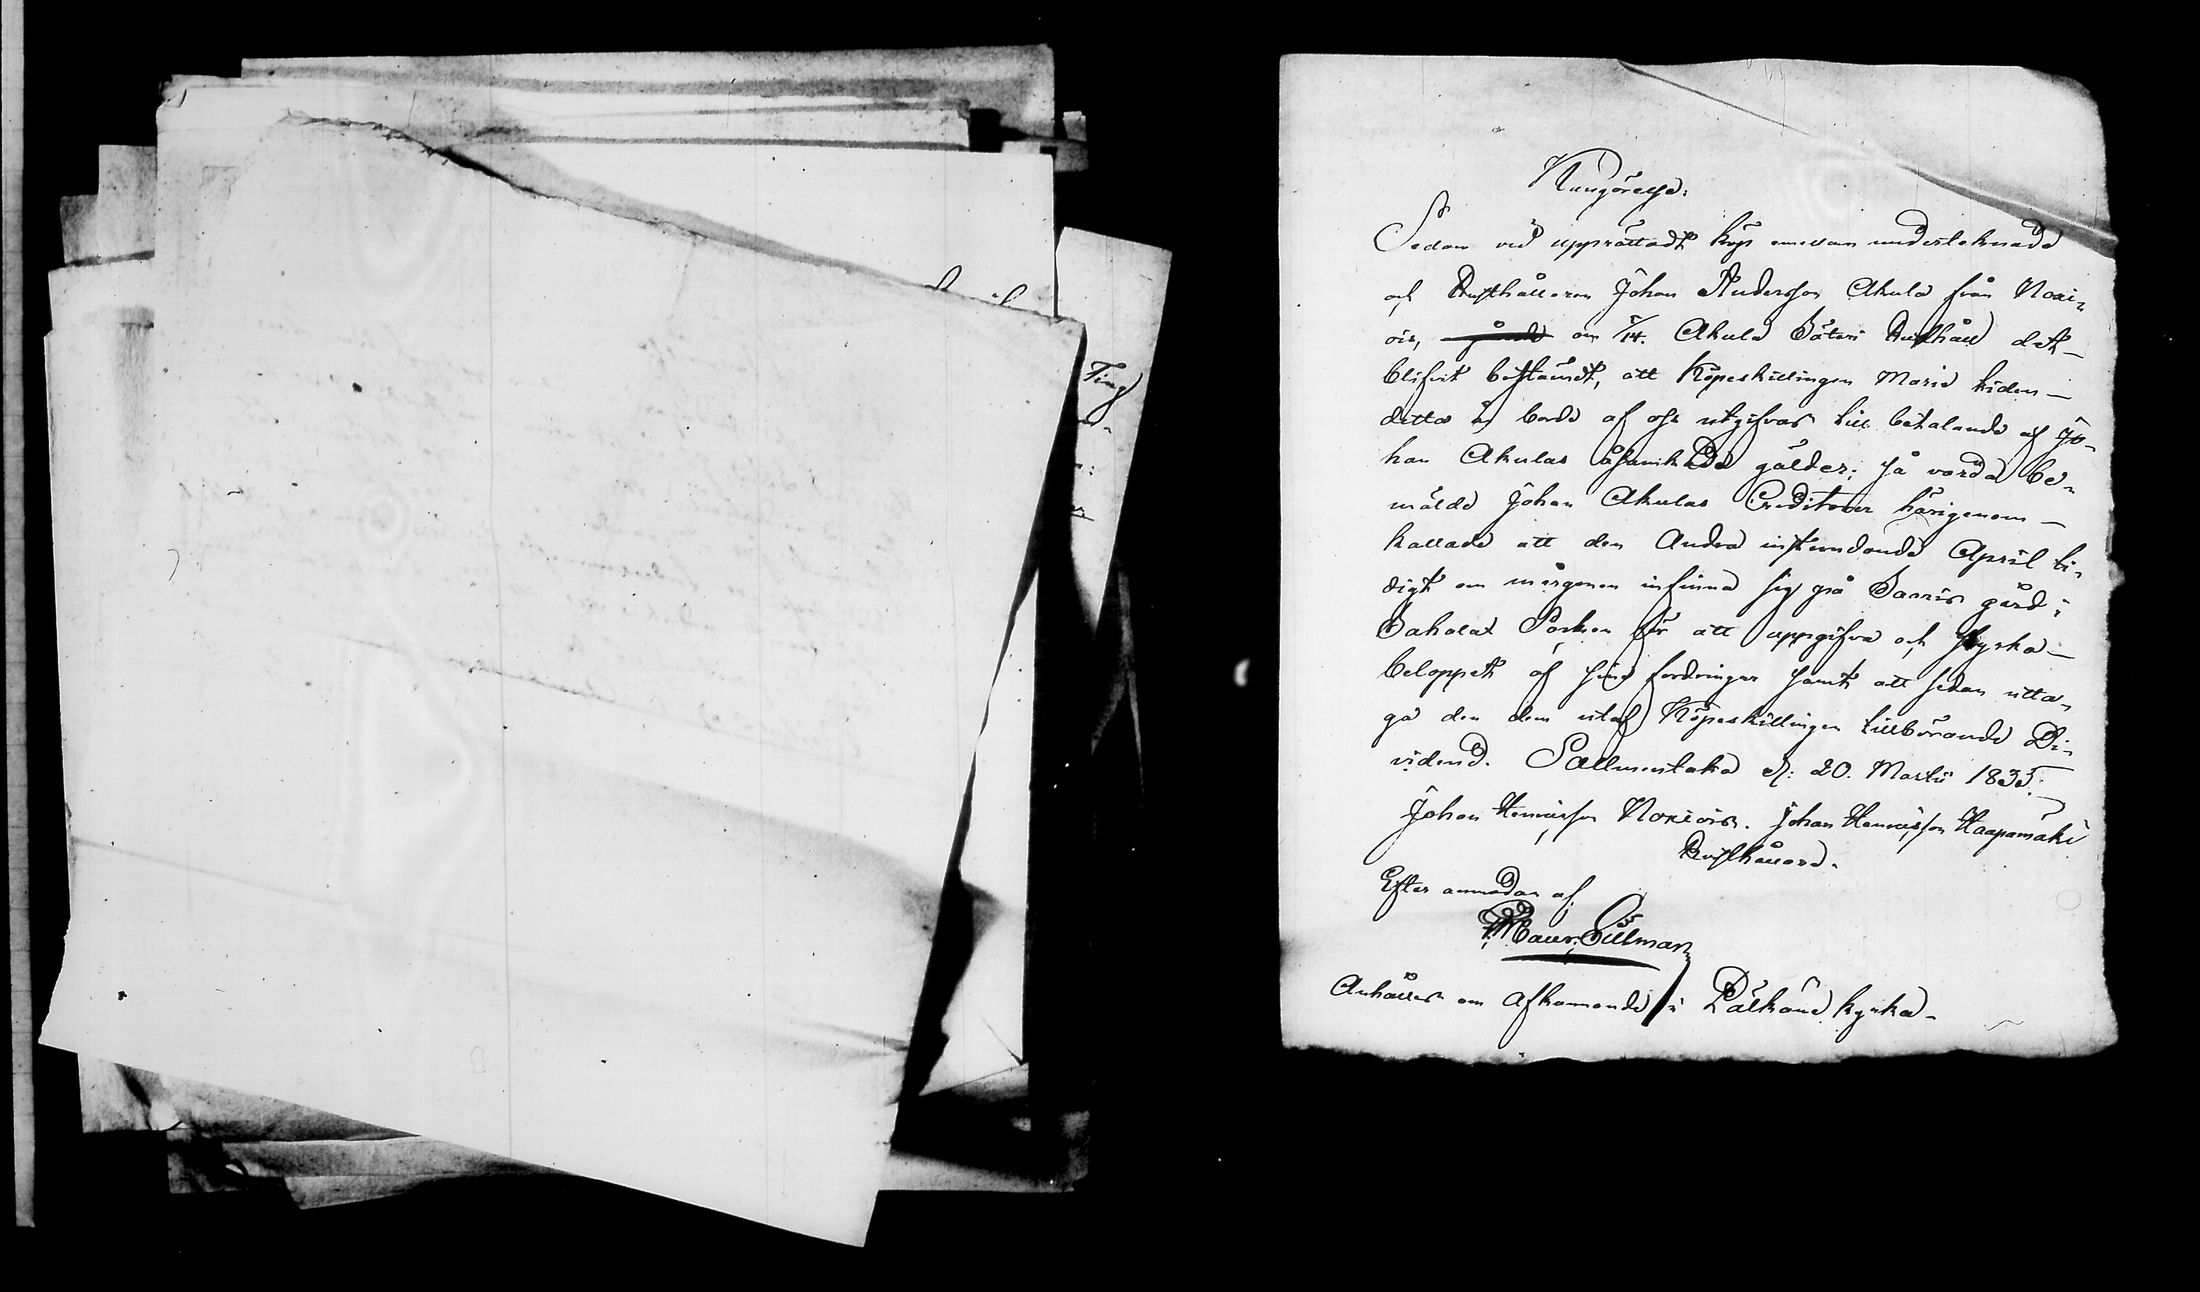 Kungörelse.
Sedan vid upprättadt köp emellan underteknade
och Rusthållaren Johan Andersson Akula från Noxi-
ois, om 7/14. Akula Säteri Rusthåll det
blifvit bestämdt, att Köpeskillingen Maria tiden
detta år borde af oss utgifvas till betalande af Jo-
han Akulas åsamkade gälder; så varda be-
mälde Johan Akulas Creditorer härigenom
kallade att den Andra instundande April ti-
digt om morgonen infinna sig på Saaris gård i
Sahalax Socken för att uppgifva och styrka
beloppet af sina fordringar samt att sedan utta-
ga den dem utaf Köpeskillingen tillbörande Di-
vidend. Sallmentaka d. 20. Martii 1833.
Johan Hennissson Noxiois. Johan Hennisson Haapamäki
Rusthållare.
Efter anmodan af
Maur. Sillman
Anhålles om Afkomande i Pälkäne kyrka.
Ting